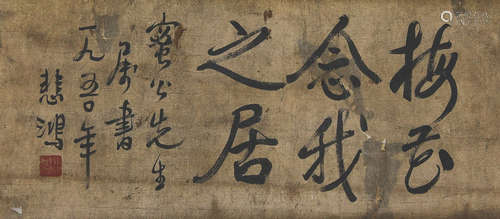 梅花
念我
之居
蜜公先生
属书
一九五〇年
悲鸿